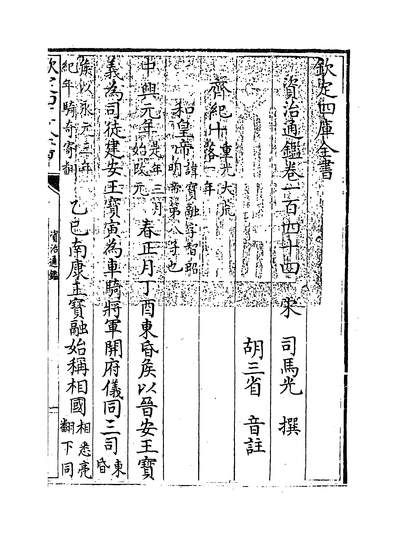 欽定四庫全書
資治通鑑卷一百四十四 宋 司馬光 撰
胡三省 音註
齊紀十 重光大荒落一年
和皇帝 諱寶融字智昭明帝第八子也
中興元年 是年三月始改元 春正月丁酉東昏侯以晉安王寶
義為司徒建安王寶寅為車騎將軍開府儀同三司 東昏
侯以永元三年紀年騎奇寄翻 乙巳南康王寶融始稱相國 相悉亮翻下同
資治通鑑